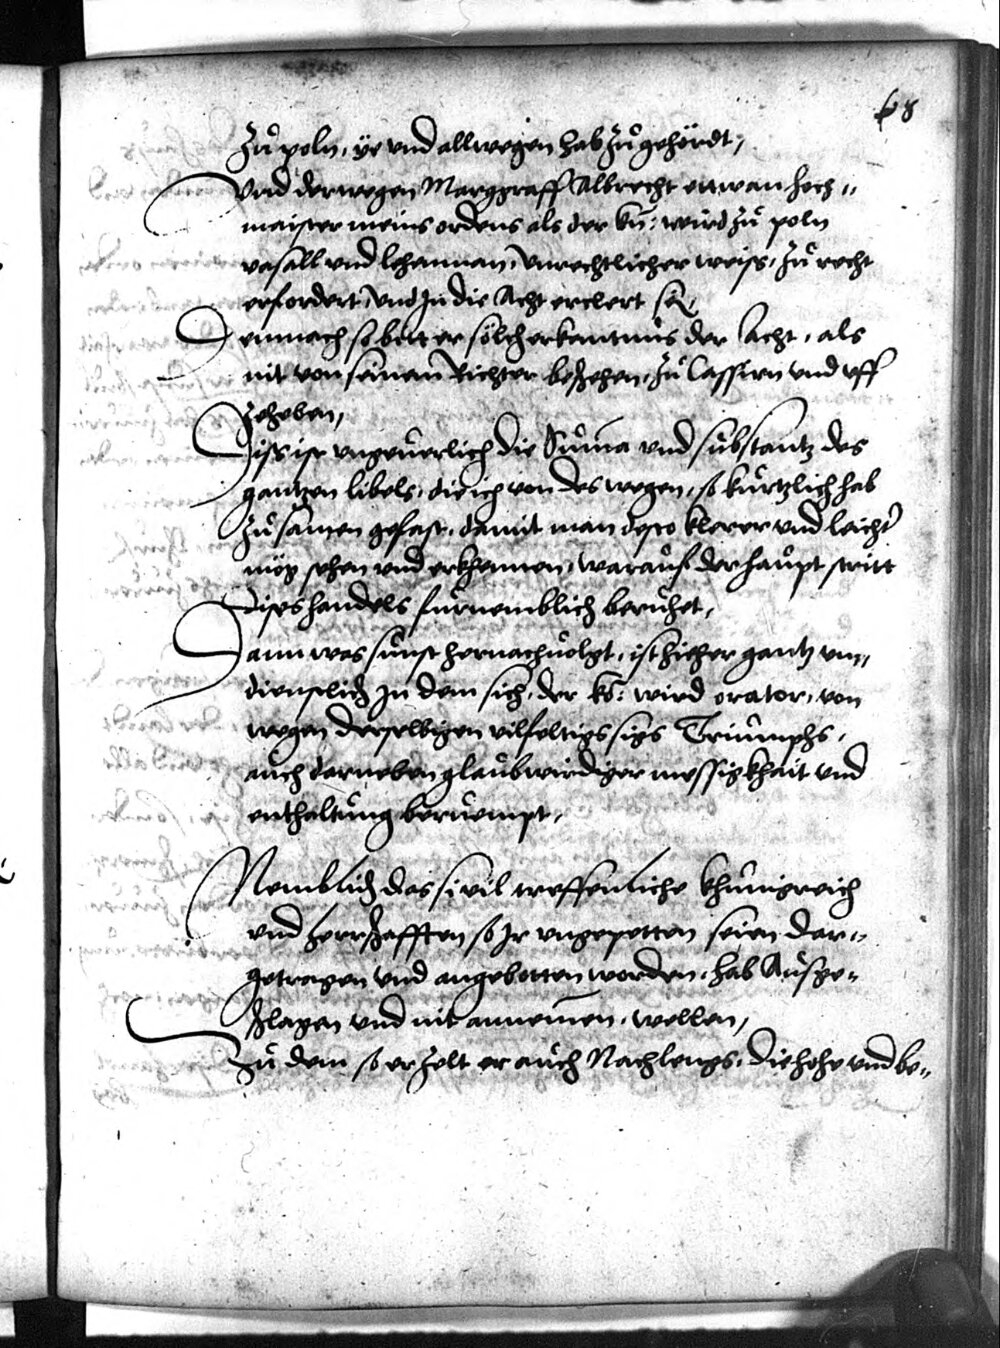 68
Zů poln, ye und allwegen hab zůgehördt,
Und derwegen Marggraff Albrecht ettwan hoch-
maister meins ordens als der kn: wird zů poln
vasall und lehenman, unrechtlicher weiss, zů recht
erfordert, und In die Acht erclert sey,
Demnach so bitt er sölch erkantnus der Acht, als
nit von seinem Richter beschehen, zů Cassirn und uff
zeheben,
Diss ist ungeuerlich die Suma und substantz des
gantzen libels, die ich von des wegen, so kurtzlich hab
zů samen gefast, damit man desto klerer und leichter
mög sehen und erkhennen, warauf der haupt stritt
dises handels furnemblich beruhet,
Dann was sunst hernachuolgt, ist hieher gantz un-
dienstlich In dem sich, der ko: wird orator, von
wegen derselbigen vilfeltigs sigs Triumphs,
auch darneben glaubwirdiger messigkhait und
enthaltung beruempt,
Nemblich das si vil treffenliche khunigreich
und herrschafften so Ir ungepetten seien dar-
getragen und angebotten worden, hab Ausge-
schlagen und nit annemen, wellen,
Zů dem so erzelt er auch Nachlengs, die hohe und be-